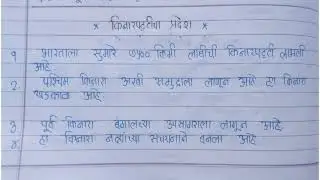 * किनारपट्टीचा प्रदेश *
१ भारताला सुमारे ७५०० किमी लांबीची किनारपट्टी लाभली
आहे.
2. पश्चिम किनारा अरबी समुद्राला लागून आहे हा किनारा
खडकाळ आहे.
3. पूर्व किनारा बंगालच्या उपसागराला लागून आहे.
४. हा किनारा नद्यांच्या संचयनाने बनला आहे